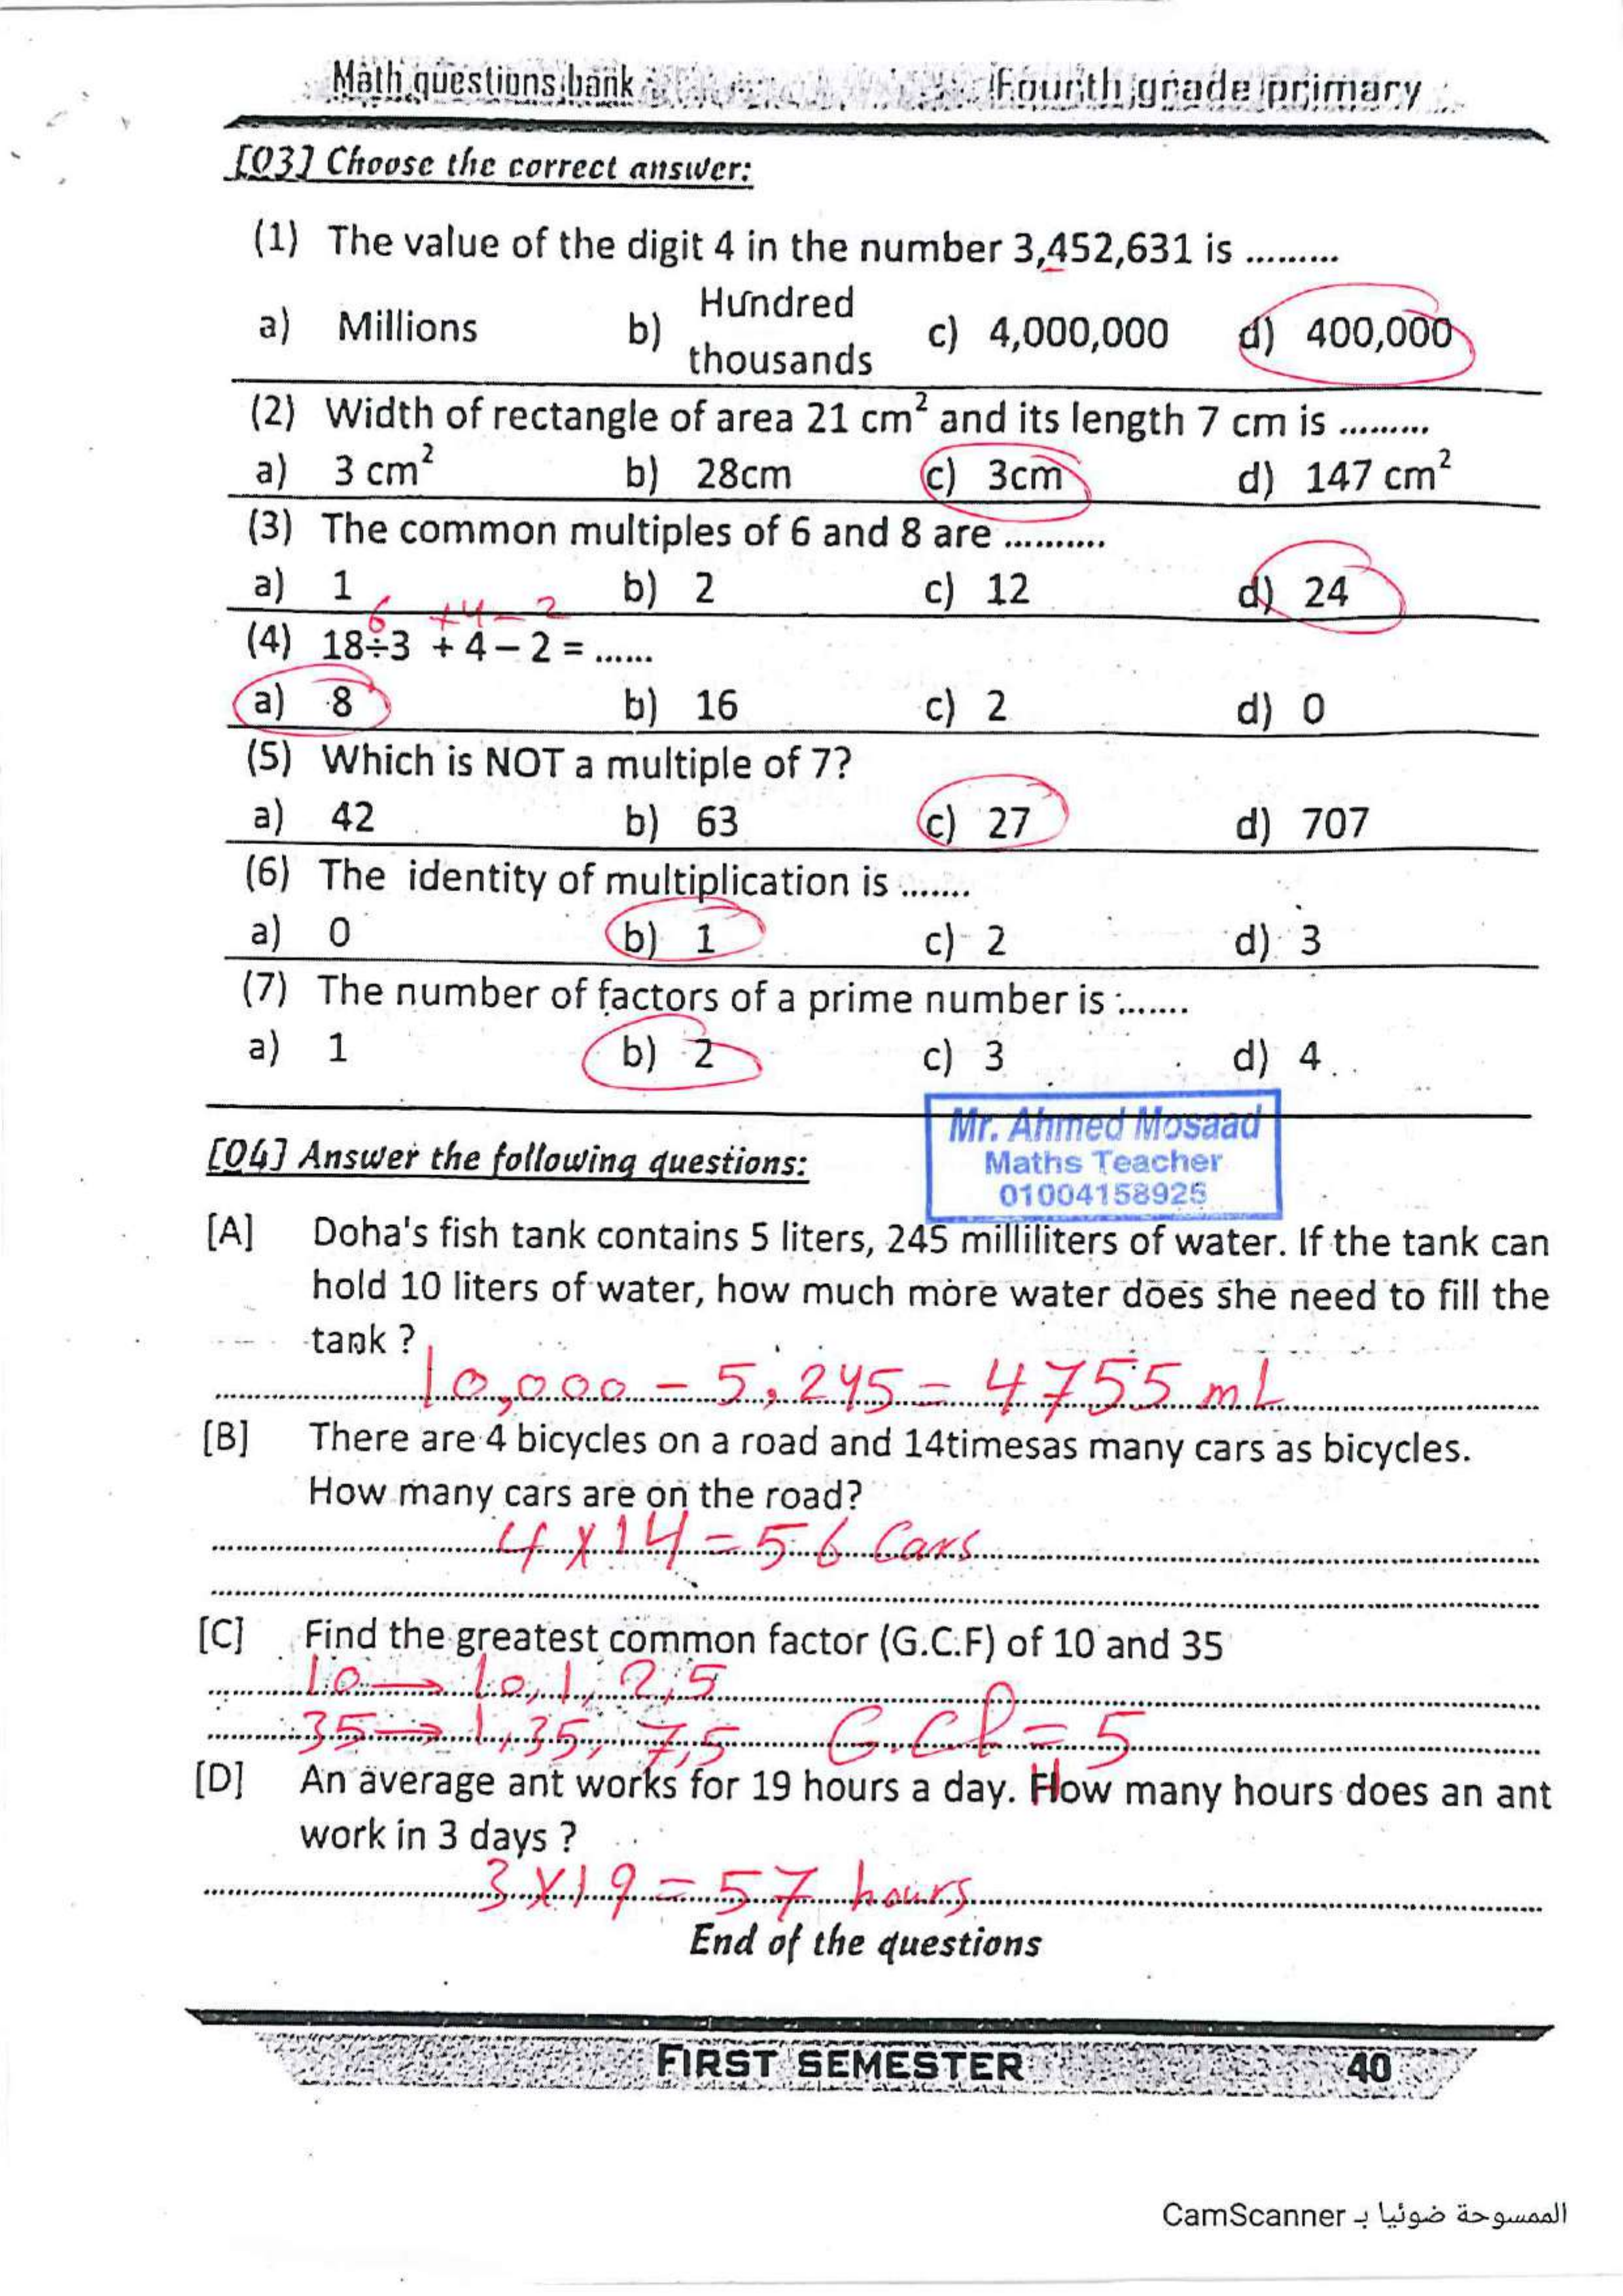 Math questions bank Fourth grade primary
[Q3] Choose the correct answer:
(1) The value of the digit 4 in the number 3,452,631 is .........
a) Millions b) Hundred thousands c) 4,000,000 d) 400,000
(2) Width of rectangle of area 21 cm² and its length 7 cm is .........
a) 3 cm² b) 28cm c) 3cm d) 147 cm²
(3) The common multiples of 6 and 8 are ..........
a) 1 b) 2 c) 12 d) 24
6 +4 - 2
(4) 18÷3 + 4 – 2 = ......
a) 8 b) 16 c) 2 d) 0
(5) Which is NOT a multiple of 7?
a) 42 b) 63 c) 27 d) 707
(6) The identity of multiplication is .......
a) 0 b) 1 c) 2 d) 3
(7) The number of factors of a prime number is .......
a) 1 b) 2 c) 3 d) 4
Mr. Ahmed Mosaad
Maths Teacher
01004158925
[Q4] Answer the following questions:
[A] Doha's fish tank contains 5 liters, 245 milliliters of water. If the tank can
hold 10 liters of water, how much more water does she need to fill the
tank ?
10,000 - 5,245 = 4755 mL
[B] There are 4 bicycles on a road and 14timesas many cars as bicycles.
How many cars are on the road?
4 x 14 = 56 Cars
[C] Find the greatest common factor (G.C.F) of 10 and 35
10 → 10, 1, 2, 5
35 → 1, 35, 7, 5 G.CF = 5
[D] An average ant works for 19 hours a day. How many hours does an ant
work in 3 days ?
3 x 19 = 57 hours
End of the questions
FIRST SEMESTER 40
الممسوحة ضوئيا بـ CamScanner